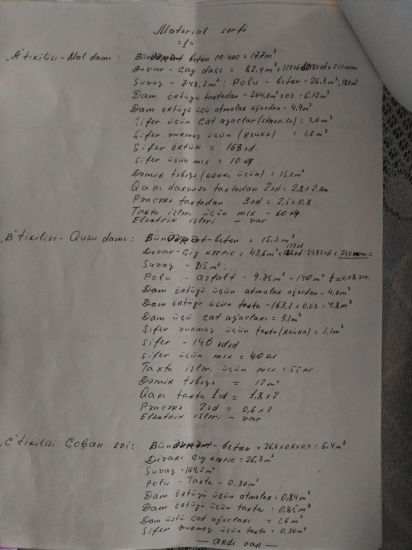 Material sərfi
=1=
"A" tikilisi - Mal damı: Bünövrə - beton M-400 = 17.7 m³
Divar - Çay daşı = 82.4 m³
Suvaq - 748,2 m² Polu - beton = 26.3 m³
Dam örtüyü taxtadan - 204.0 m² x 03 = 6.12 m³
Dam örtüyü üçün atmalar ağacdan - 4.9 m³
Şifer üçün çat ağaclar = 2.6 m³
Şifer vurmaq üçün (Reyka) = 1.0 m³
Şifer örtük = 168 əd.
Şifer üçün mıx = 10 kq
Dəmir təbəqə = 15.0 m²
Qapı darvaza taxtadan 2əd = 2.8 x 2.2 m
Pəncərə taxtadan 3əd = 2,5 x 0,8
Taxta işləri üçün mıx - 60 kq
Elektrik işləri - var
"B" tikilisi - Quzu damı: Bünövrə - beton = 15.3 m³
Divar - Çiy kərpic = 43.6 m³
Suvaq - m²
Polu - asfalt - 9.75 m³ - 140 m²
Dam örtüyü üçün atmalar ağacdan = 4.0 m³
Dam örtüyü üçün taxta - 163.2 x 0.03 = 4.8 m³
Dam üçü çat ağacları = 3.1 m³
Şifer vurmaq üçün taxta (Reyka) = 1.1 m³
Şifer - 140 ədəd
Şifer üçün mıx = 40 kq
Taxta işləri üçün mıx = 55 kq
Dəmir təbəqə = 12 m²
Qapı taxta 1əd = 1.8 x 2
Pəncərə 2əd = 0,6 x 2
Elektrik işləri - var
"C" tikilisi: Çoban evi: Bünövrə - beton = 26.6 x 0.6 x 0.4 = 6.4 m³
Divarı Çiy kərpic = 26,3 m³
Suvaq = 169.2 m²
Polu - Taxta - 0.30 m³
Dam örtüyü üçün atmalar = 0,84 m³
Dam örtüyü üçün taxta = 0.85 m³
Dam üstü çat ağacları = 1,6 m³
Şifer vurmaq üçün taxta = 0.30 m³
— ardı var —